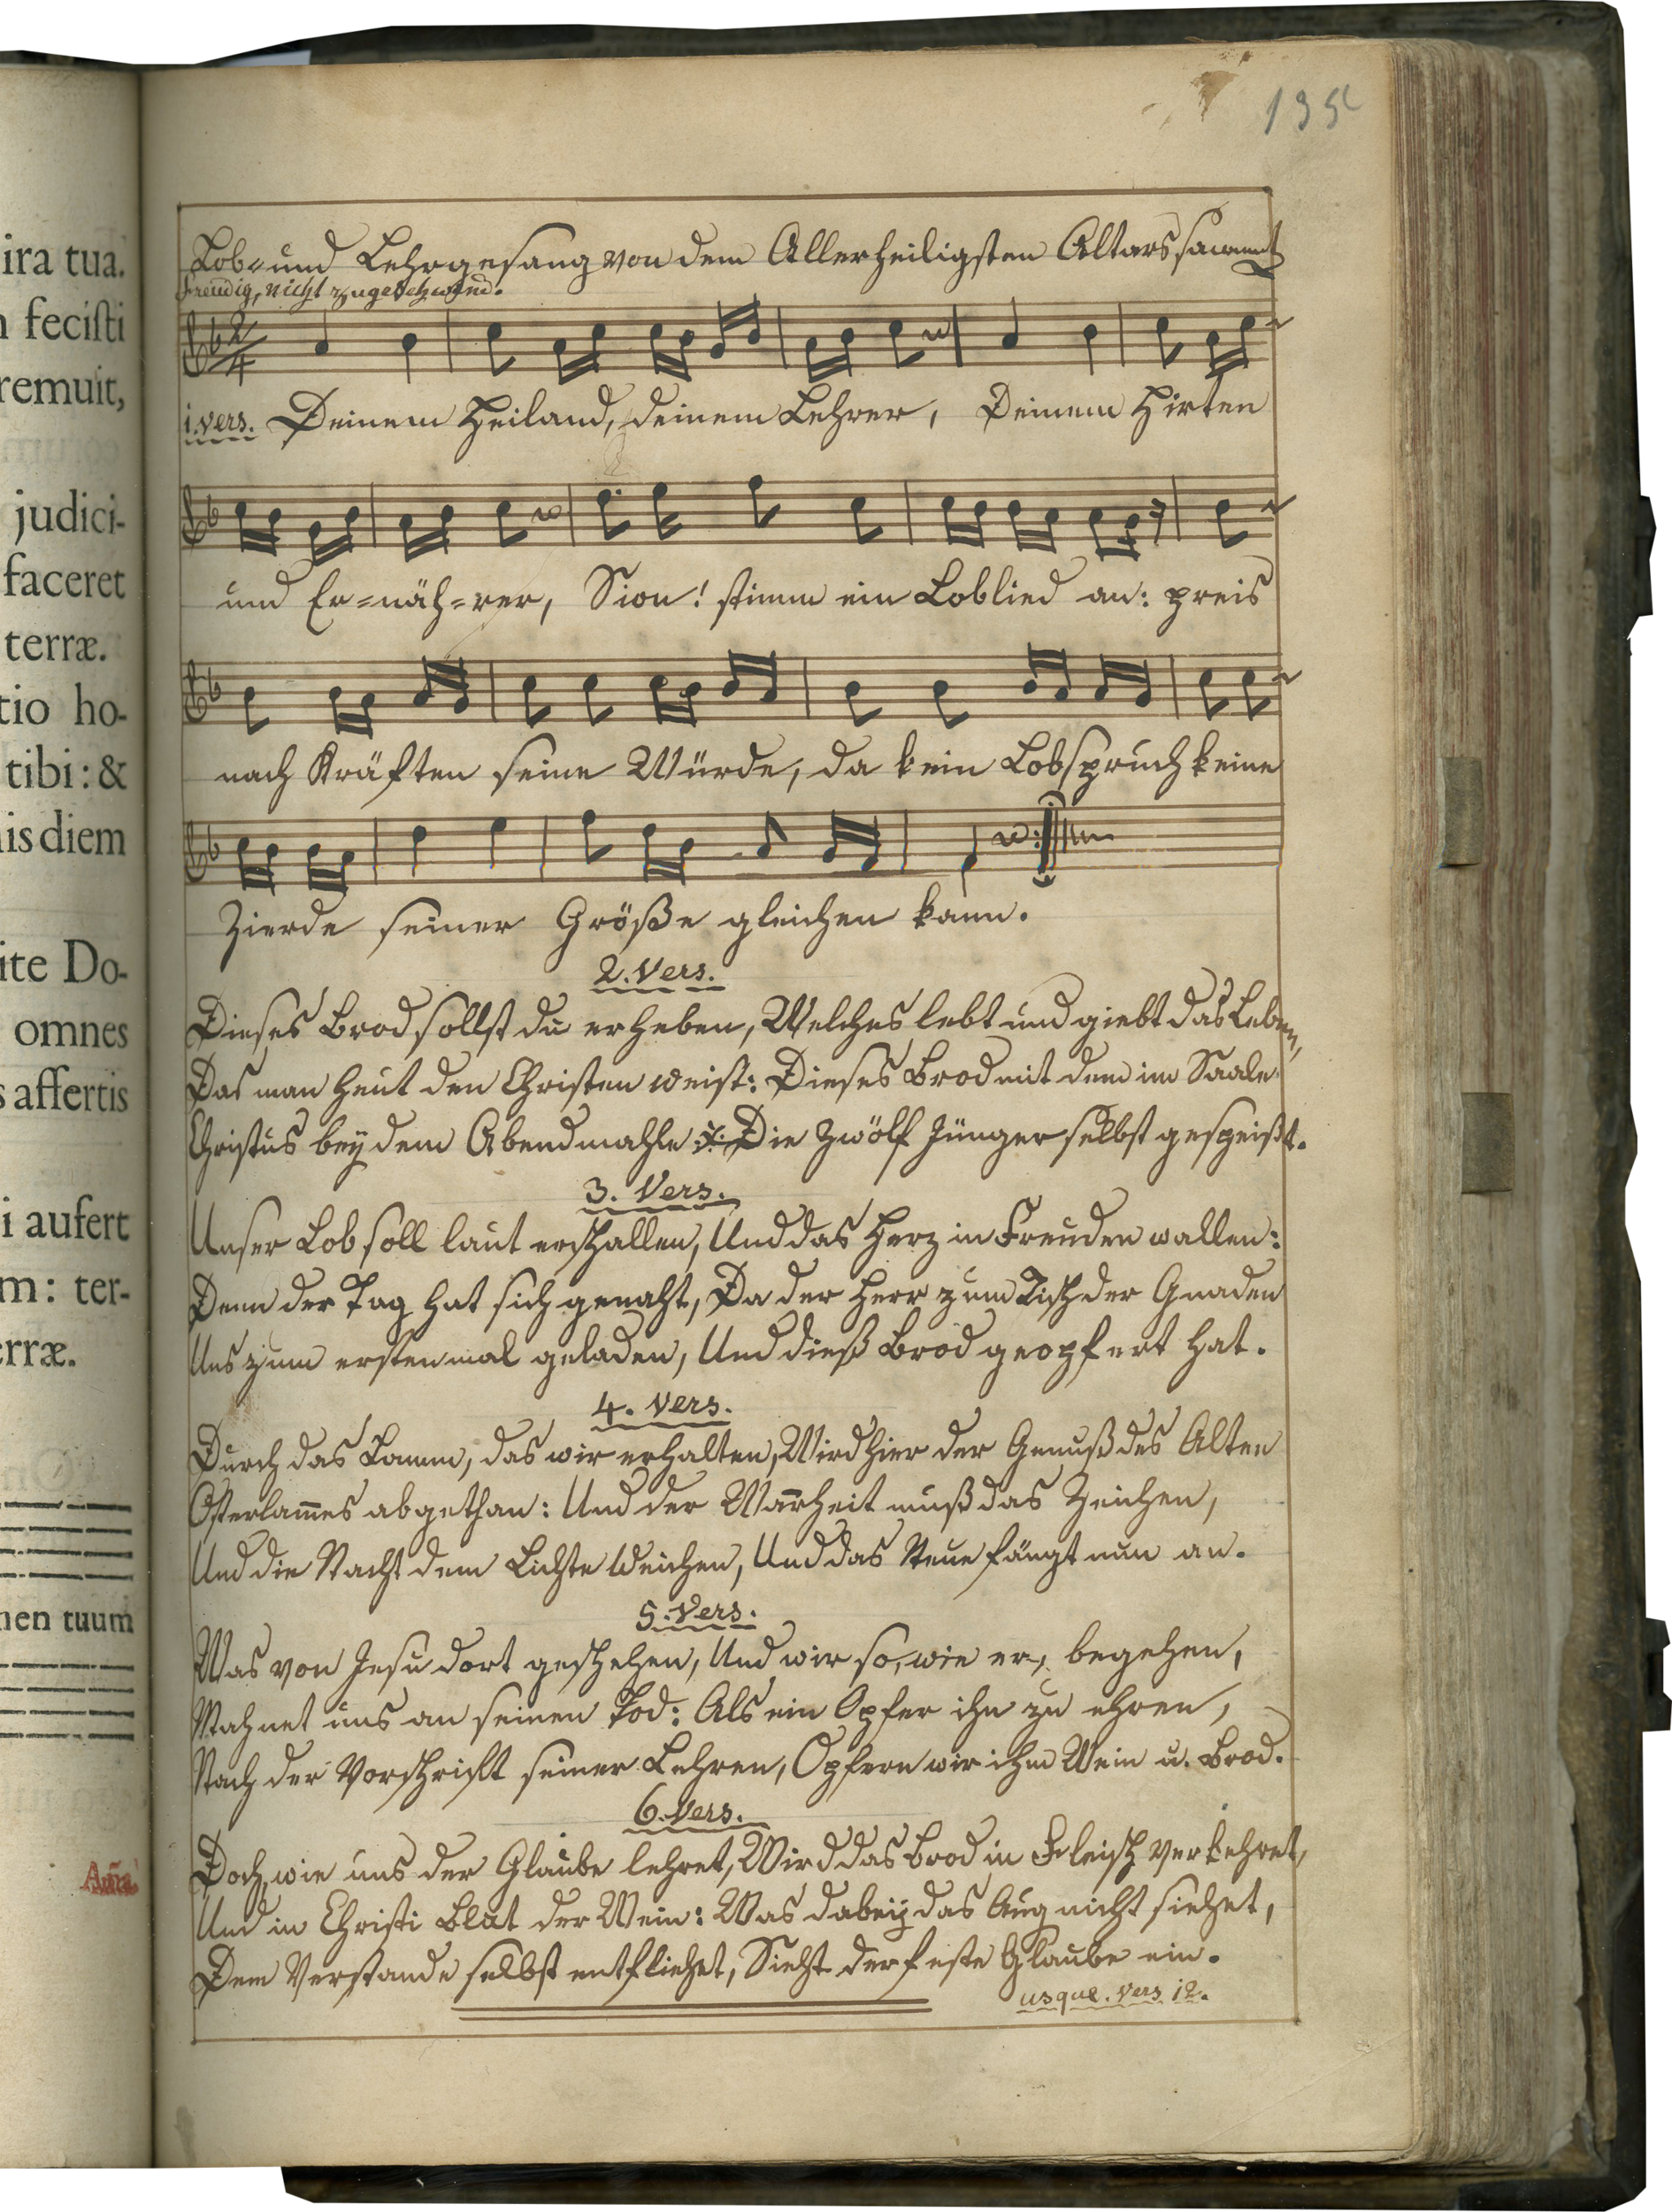 ira tua.
fecisti
remuit,
judici-
faceret
terræ.
tio ho-
tibi: &
is diem
ite Do-
omnes
s affertis
i aufert
m: ter-
rræ.
men tuum
Aña
Lob- und Lehrgesang von dem Allerheiligsten Altarssacrament
freudig, nicht zugeschwind.
2/4
1. vers. Deinem Heiland, deinem Lehrer, Deinem Hirten
und Er=näh=rer, Sion! stimm ein Loblied an: preis
nach Kräften seine Würde, da kein Lobspruch keine
Zierde seiner Größe gleichen kann.
2. Vers.
Dieses Brod sollst du erheben, Welches lebt und giebt das Leben,
Das man heut den Christen weist: Dieses Brod mit dem im Saale
Christus bey dem Abendmahle Die zwölf Jünger selbst gespeißt.
3. Vers.
Unser Lob soll laut erschallen, Und das Herz in Freuden wallen:
Denn der Tag hat sich genaht, Da der Herr zum Tisch der Gnaden
Uns zum erstenmal geladen, Und dieß Brod geopfert hat.
4. Vers.
Durch das Lamm, das wir erhalten, Wird hier der Genuß des Alten
Osterlam̅es abgethan: Und der Warheit muß das Zeichen,
Und die Nacht dem Lichte weichen, Und das Neue fängt nun an.
5. Vers.
Was von Jesu dort geschehen, Und wir so, wie er, begehen,
Mahnet uns an seinen Tod: Als ein Opfer ihn zu ehren,
Nach der Vorschrift seiner Lehren, Opfern wir ihm Wein u. Brod.
6. Vers.
Doch, wie uns der Glaube lehret, Wird das Brod in Fleisch verkehret,
Und in Christi Blut der Wein: Was dabey das Aug nicht siehet,
Dem Verstande selbst entfliehet, Sieht der feste Glaube ein.
usque. vers 12.